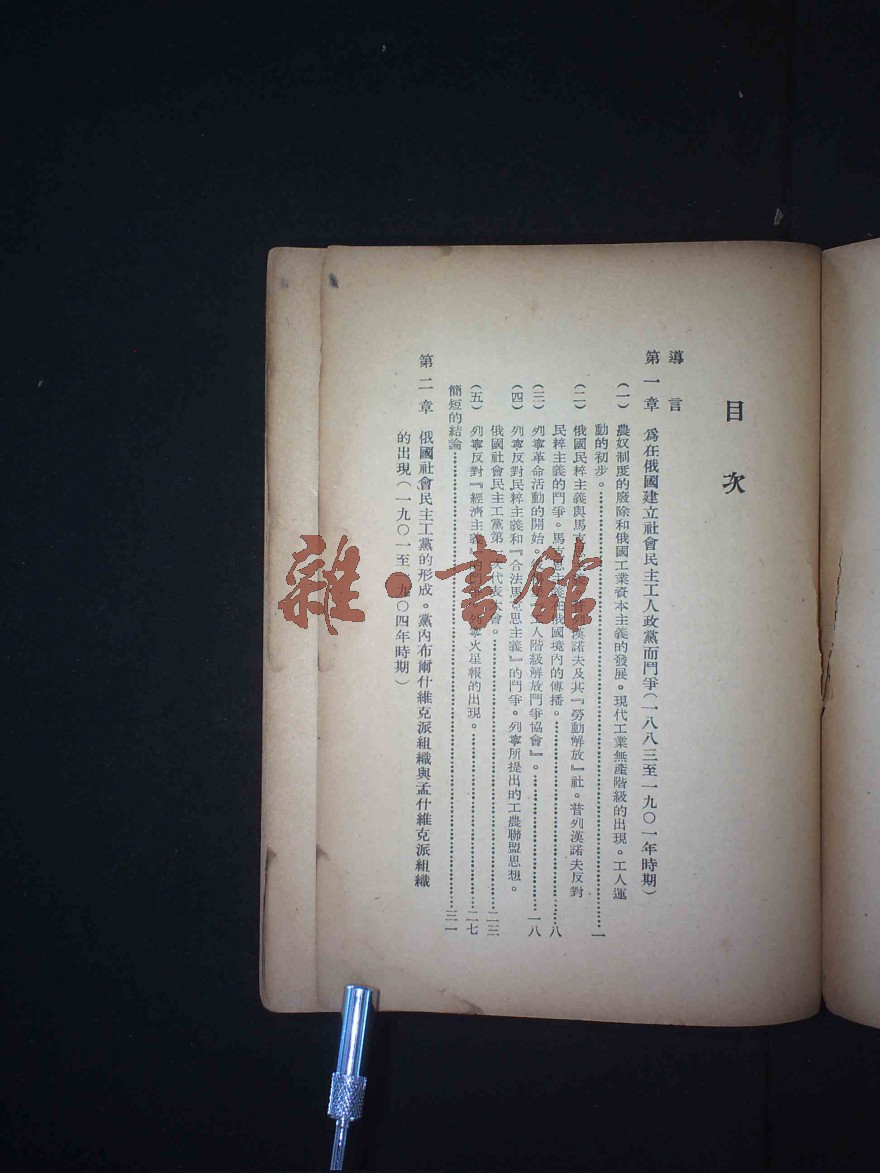 目次
導言
第一章 爲在俄國建立社會民主工人政黨而鬥爭（一八八三至一九〇一年時期）
（一） 農奴制度的廢除和俄國工業資本主義的發展。現代工業無產階級的出現。工人運
動的初步。……一
（二） 俄國民粹主義與馬克思 普列漢諾夫及其『勞動解放』社。普列漢諾夫反對
民粹主義的鬥爭。馬克思主義在俄國境內的傳播。……八
（三） 列寧革命活動的開始。 工人階級解放鬥爭協會』。……一八
（四） 列寧反對民粹主義和『合法馬克思主義』的鬥爭。列寧所提出的工農聯盟思想。
俄國社會民主工黨第一次代表大會。……二三
（五） 列寧反對『經濟主義』的 列寧火星報的出現。……二七
簡短的結論……三一
第二章 俄國社會民主工黨的形成。黨內布爾什維克派組織與孟什維克派組織
的出現（一九〇一至一九〇四年時期）
雜·書館